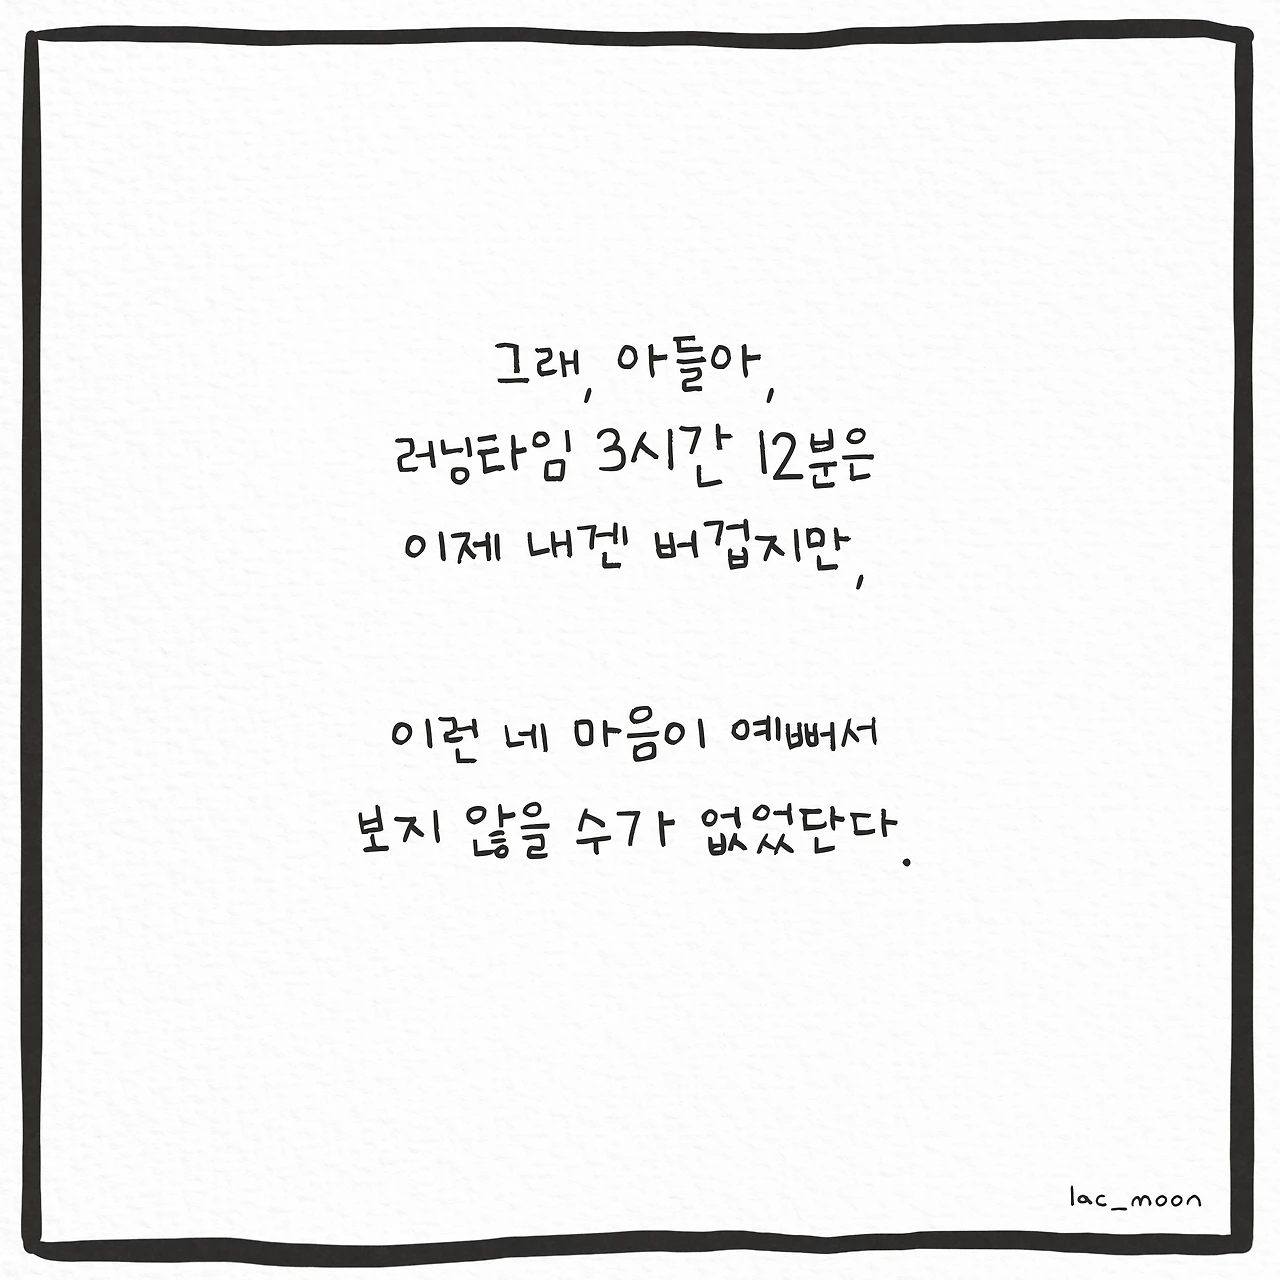 그래, 아들아,
러닝타임 3시간 12분은
이제 내겐 버겁지만,
이런 네 마음이 예뻐서
보지 않을 수가 없었단다.
lac_moon